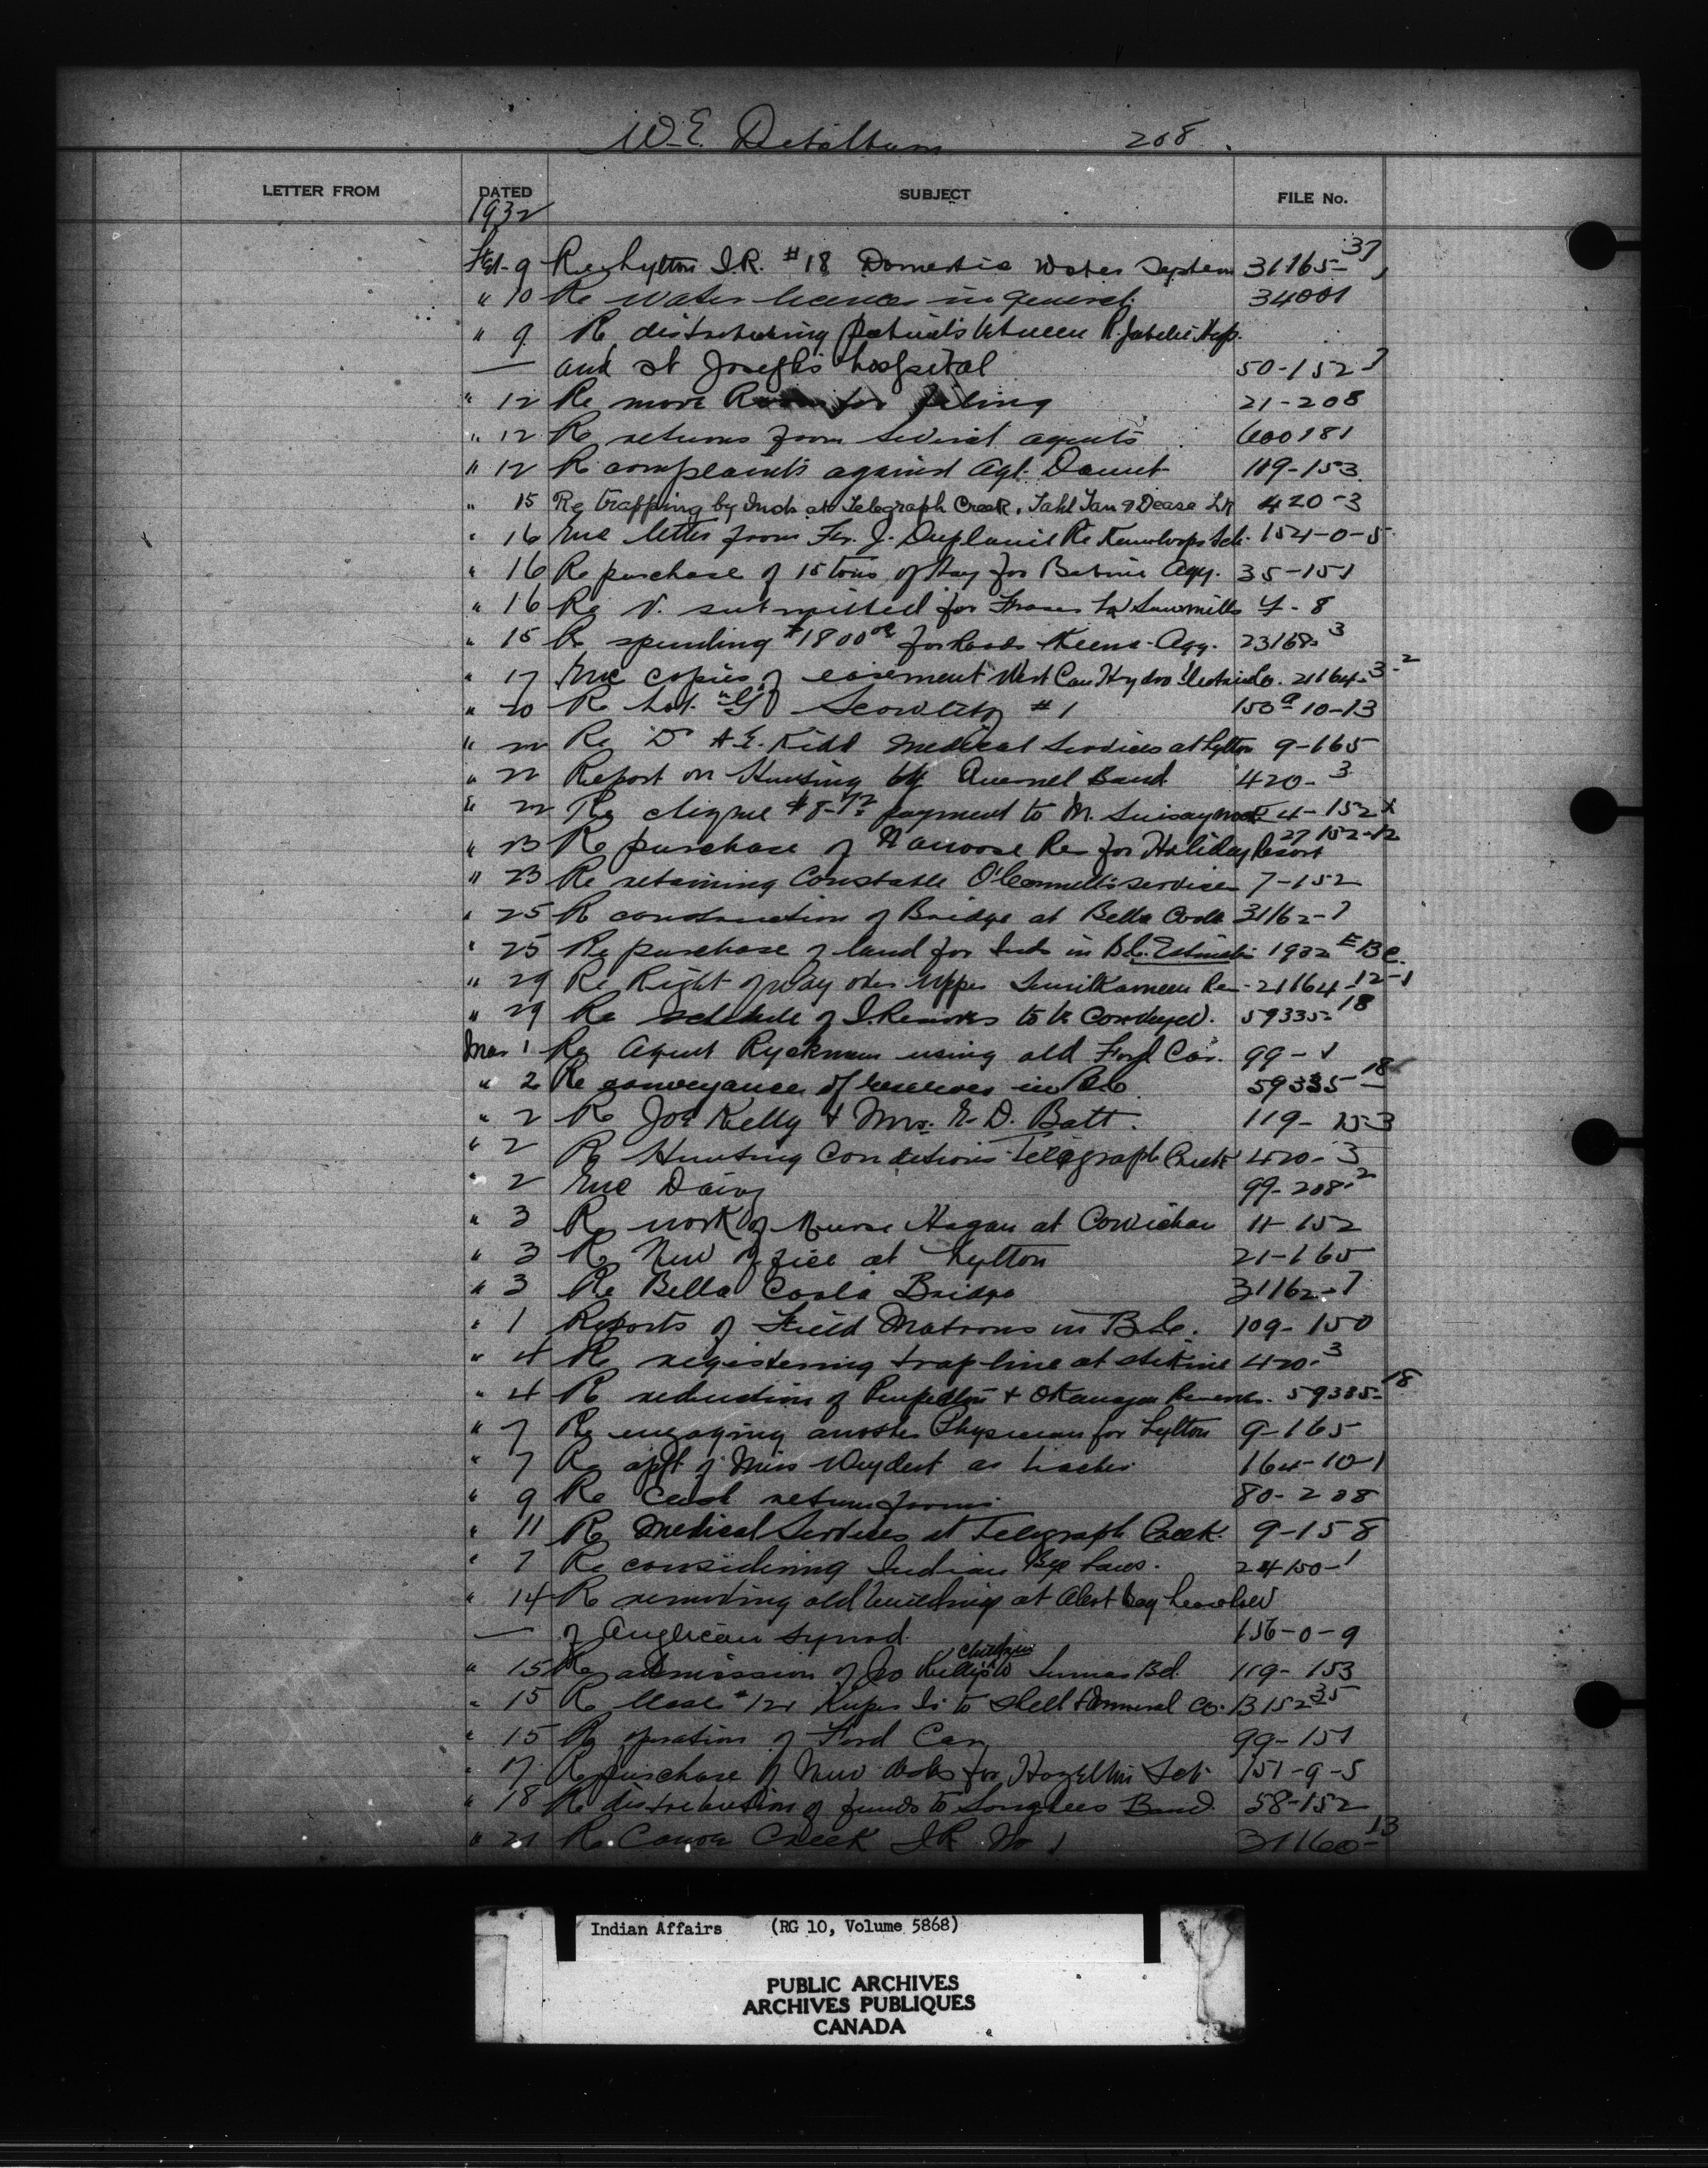 W.E. Ditchburn 208.
LETTER FROM DATED SUBJECT FILE No.
1932
Feb. 9 Re Lytton I.R. #18 Domestic Water System 31165-37
" 10 Re water licences in general. 34001
" 9 Re distributing patients between R. Jubilee Hosp.
— and St Joseph's hospital 50-152-7
" 12 Re more Room for filing 21-208
" 12 Re returns from several agents 600181
" 12 Re complaints against Agt. Daunt 119-153
" 15 Re trapping by Inds at Telegraph Creek, Tahl Tan & Dease Lk 420-3
" 16 Enc letter from Fr. J. Duplanil Re Kamloops Sch. 154-0-5
" 16 Re purchase of 15 tons of Hay for Babine Agy. 35-151
" 16 Re V. submitted for Fraser Lk Sawmills 4-8
" 15 Re spending $1800.00 for Roads Agy. 23168-3
" 17 Enc copies of easement West Can Hydro Electric Co. 21164-3-2
" 20 Re Lot "G" Scowlitz #1 150a 10-13
" 22 Re Dr A.E. Kidd Medical Services at Lytton 9-165
" 22 Report on Hunting by Quesnel Band. 420-3
" 22 Re cheque payment to M. 4-152
" 23 Re purchase of Nanoose Re for Holiday Resort 27152-12
" 23 Re retaining Constable O'Connell's services 7-152
" 25 Re construction of Bridge at Bella Coola 31162-7
" 25 Re purchase of land for Inds in B.C. Estimates 1932 E BC.
" 29 Re Right of way over Upper Similkameen Re - 21164-12-1
" 29 Re schedule of I. Reserves to be Conveyed. 59335-18
Mar 1 Re Agent Ryckman using old Ford Car. 99-1
" 2 Re conveyance of reserves in B.C. 59335-18
" 2 Re Joe Kelly & Mrs. E.D. Batt. 119-153
" 2 Re Hunting Conditions Telegraph Creek 420-3
" 2 Enc Dairy 99-208-2
" 3 Re work of Nurse Hagan at Cowichan 11-152
" 3 Re New Office at Lytton 21-165
" 3 Re Bella Coola Bridge 31162-7
" 1 Reports of Field Matrons in B.C. 109-150
" 4 Re registering trap-line at Stikine 420-3
" 4 Re reduction of Penticton & Okanagan Reserves. 59335-18
" 7 Re engaging another Physician for Lytton 9-165
" 7 Re apt of Miss Weydert as teacher 164-10-1
" 9 Re cash return forms. 80-208
" 11 Re Medical Services at Telegraph Creek. 9-158
" 7 Re considering Indian Bye Laws. 24150-1
" 14 Re removing old building at Alert Bay
— of Anglican Synod. 156-0-9
" 15 Re admission of Jo Kelly's children to Sumas Bd. 119-153
" 15 Re lease #12 Kuper Is to Shell & Mineral Co. 13152-35
" 15 Re operation of Ford Car 99-151
" 17 Re purchase of New desks for Hazelton Sch 151-9-5
" 18 Re distribution of funds to Songhees Band. 58-152
" 21 Re Canoe Creek I.R. No 1 31160-13
Indian Affairs (RG 10, Volume 5868)
PUBLIC ARCHIVES
ARCHIVES PUBLIQUES
CANADA